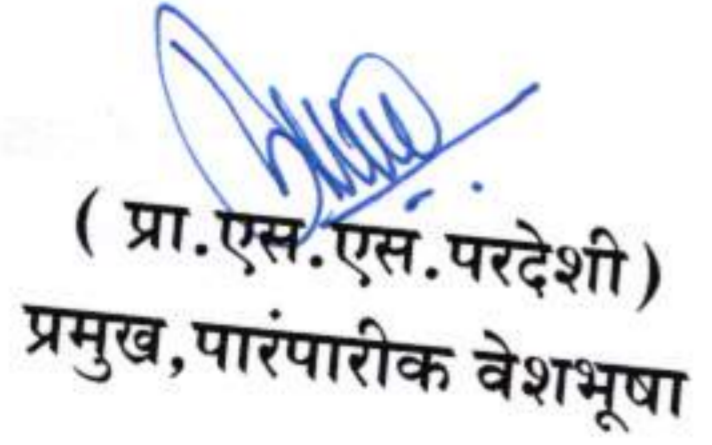 ( प्रा.एस.एस.परदेशी)
प्रमुख,पारंपारीक वेशभूषा